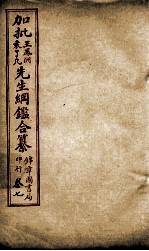 加批王鳳洲袁了凡先生綱鑑合纂
錦章圖書局印行
卷七